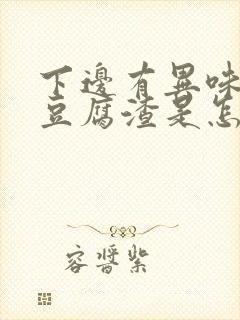 下邊有異味
豆腐渣是怎
容醬紫